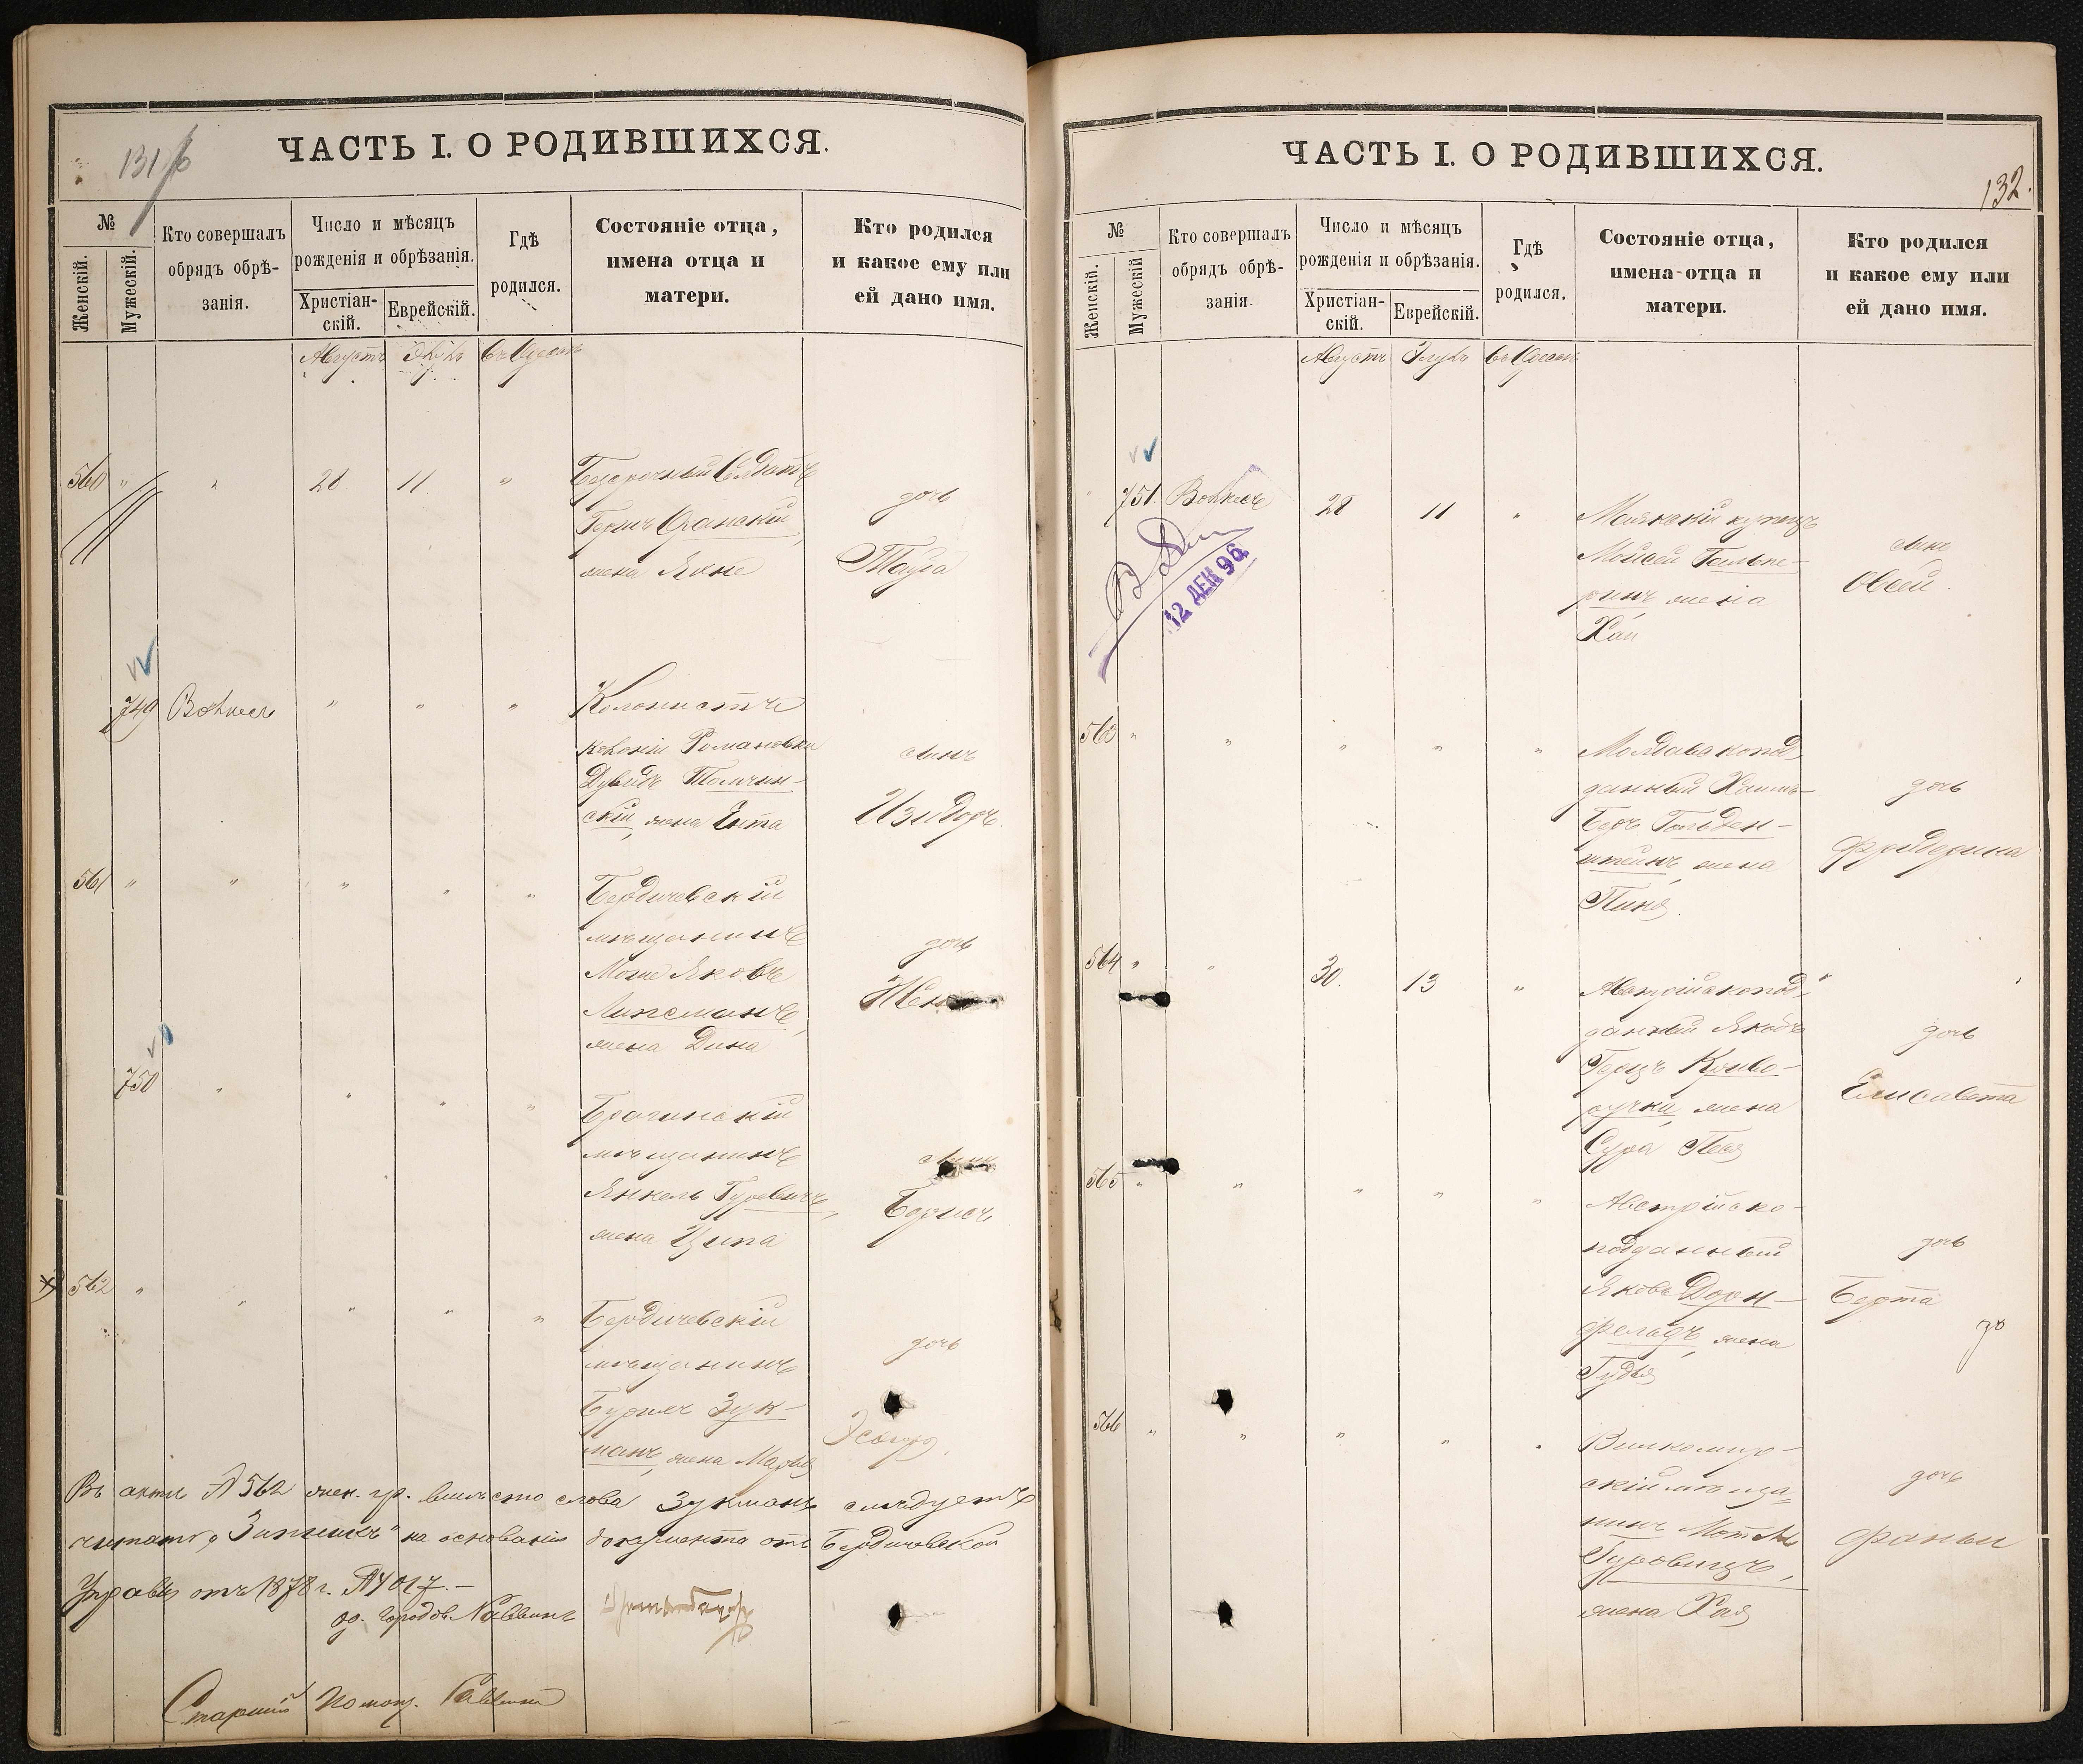 131
ЧАСТЬ I. О РОДИВШИХСЯ.
№
Женскій.
Мужескій.
Кто совершалъ
обрядъ обрѣ-
занія.
Число и мѣсяцъ
рожденія и обрѣзанія.
Христіан-
скій.
Еврейскій.
Гдѣ
родился.
Состояніе отца,
имена отца и
матери.
Кто родился
и какое ему или
ей дано имя.
Августъ Элулъ въ Одессѣ
560 " " 28 11 "
Безсрочный Солдатъ
Гершъ
жена
дочь
Тауба
749 " " "
Колонистъ
колоніи Романовка
Дувидъ Толчин-
скій, жена Ента
сынъ
Изидоръ
561 " " " " "
Бердичевскій
мѣщанинъ
Мошко Яковъ
Липсманъ,
жена Дина
дочь
750 " " " "
мѣщанинъ
Янкель Гуревичъ,
жена Ципа
сынъ
Борисъ
562 " " " " "
Бердичевскій
мѣщанинъ
Зук-
манъ, жена Марья
дочь
Эсѳирь
Въ актѣ № 562 жен. гр. вмѣсто слова Зукманъ слѣдуетъ
читать на основаніи документа отъ Бердичевской
Управы отъ 1878 г. № 4017.-
городов. Раввинъ
Старшій Помощ. Раввина
132.
ЧАСТЬ I. О РОДИВШИХСЯ.
№
Женскій.
Мужескій
Кто совершалъ
обрядъ обрѣ-
занія.
Число и мѣсяцъ
рожденія и обрѣзанія.
Христіан-
скій.
Еврейскій.
Гдѣ
родился.
Состояніе отца,
имена отца и
матери.
Кто родился
и какое ему или
ей дано имя.
Августъ Элулъ въ Одессѣ
751. 28 11 "
12 ДЕК 96
Маякскій купецъ
Мойсей Гальпе-
ринъ жена
Хая
сынъ
Овсей
563 " " " " "
Молдавскопод-
данный Хаимъ-
Беръ Гольден-
штейнъ, жена
дочь
Фридерика
564 " " 30. 13 "
Австрійскопод-
данный Якобъ
Герцъ Криво-
ручка, жена
Сура Песя
дочь
Елисавета
565 " " " " "
Австрійско-
подданный
Яковъ Дорн-
фельдъ, жена
дочь
Берта
566 " " " " "
Вилкомир-
скій мѣща-
нинъ
Гуровицъ,
жена Хая
дочь
Фаньи